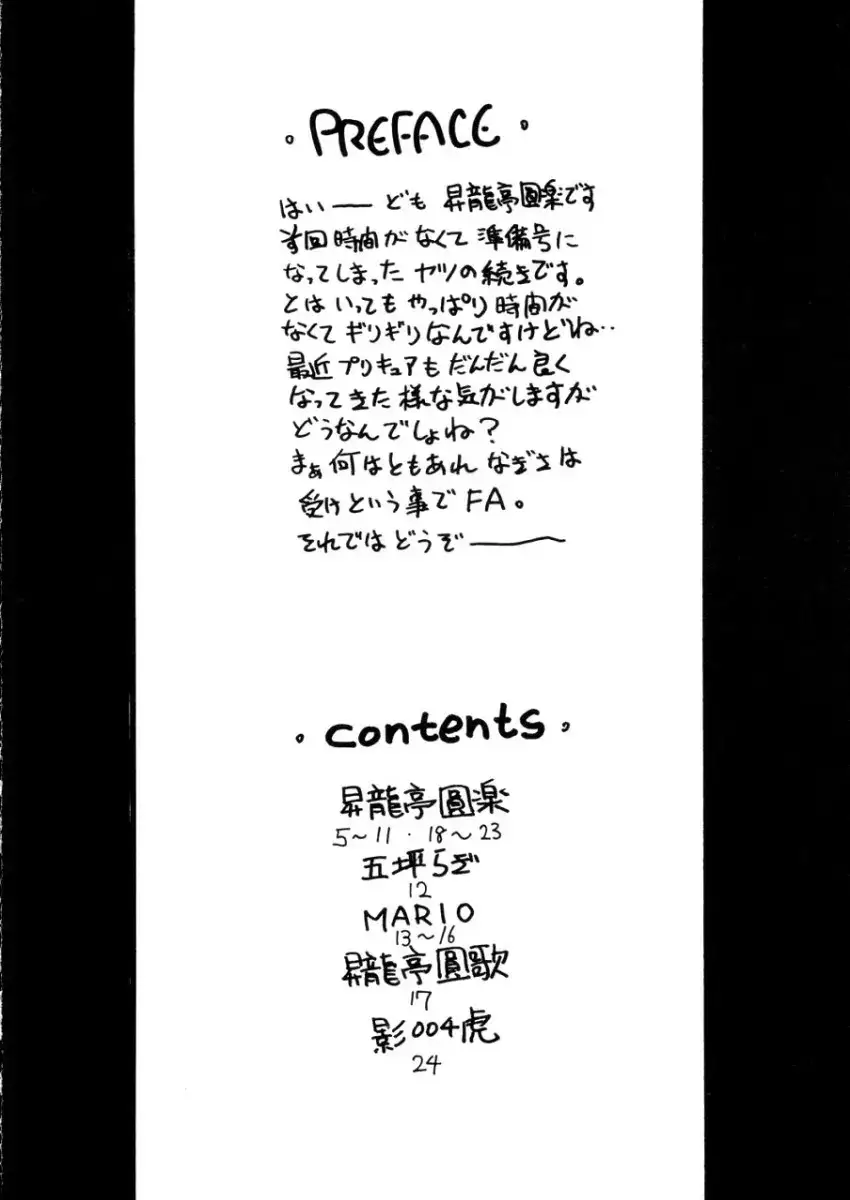 PREFACE
はい── ども 昇龍亭圓楽です
前回時間がなくて準備号に
なってしまった ヤツの続きです。
とはいっても やっぱり時間が
なくてギリギリなんですけどね‥
最近プリキュアもだんだん良く
なってきた様な気がしますが
どうなんでしょね?
まぁ何はともあれ なぎさは
受けという事でFA。
それではどうぞ───
contents
昇龍亭圓楽
5~11・18~23
五坪らぎ
12
MARIO
13~16
昇龍亭圓歌
17
影004虎
24